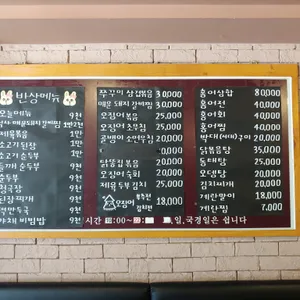 반상메뉴
오늘메뉴 9천
제육볶음 1만
소고기된장
소고기 순두부
들깨 순두부 9천
순두부 9천
청국장 9천
된장찌개 9천
떡만두국 9천
야채 비빔밥 9천
쭈꾸미 삼겹볶음 30,000
매운 돼지갈비찜 30,000
오징어볶음 25,000
오징어초무침 25,000
골뱅이 소면무침 25,000
닭똥집볶음 20,000
오징어숙회 20,000
제육두부김치 25,000
오징어 부추전 김치전 18,000
홍어삼합 80,000
홍어전 40,000
홍어회 40,000
홍어찜 40,000
닭볶음탕 35,000
동태탕 25,000
오뎅탕 20,000
김치찌개 20,000
계란말이 18,000
계란찜 7,000
시간 일,국경일은 쉽니다